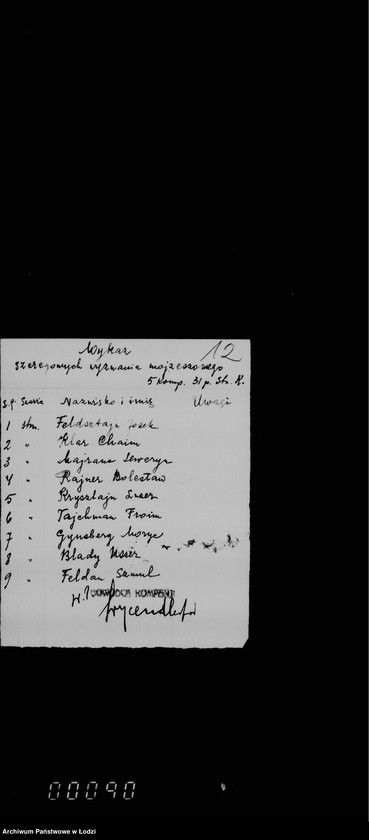 Wykaz 12
szeregowych wyznania mojżeszowego
5 komp. 31 p. Str. K.
L.p. Nazwisko i imię Uwagi
1 strz. Feldsztajn Josek
2 " Klar Chaim
3 " Majranc Seweryn
4 " Rajner Bolesław
5 " Krysztajn
6 " Tajchman Froim
7 " Gynsberg Moryc
8 " Blady
9 " Feldan Szmul
DOWÓDCA KOMPANII
00090
Archiwum Państwowe w Łodzi